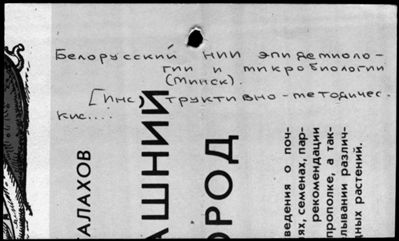 Белорусский НИИ эпидемиоло-
гии и микробиологии
(Минск).
[Инструктивно-методичес.
кис...:
АЛАХОВ
АШНИЙ
ОРОД
ведения о поч-
ях, семенах, пар-
рекомендации
прополке, а так-
лывании различ-
дных растений.